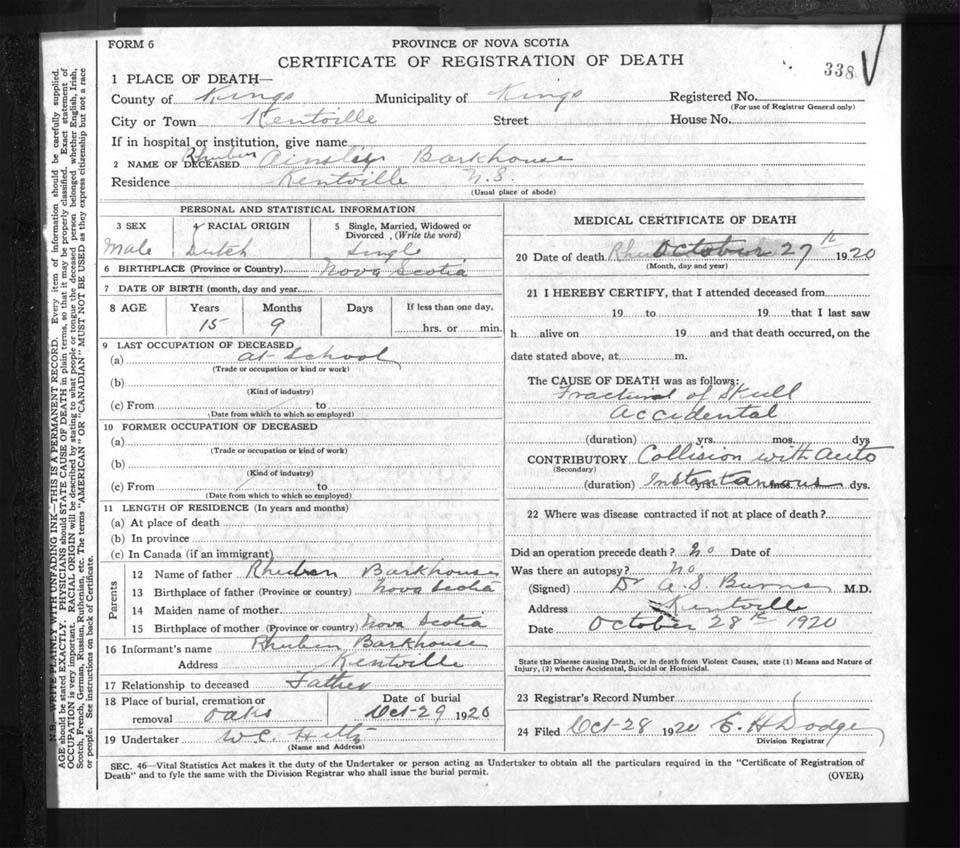 FORM 6
PROVINCE OF NOVA SCOTIA
CERTIFICATE OF REGISTRATION OF DEATH
338
1 PLACE OF DEATH—
County of Kings Municipality of Kings Registered No.
(For use of Registrar General only)
City or Town Kentville Street House No.
If in hospital or institution, give name
2 NAME OF DECEASED Rhuben Ainsley Barkhouse
Residence Kentville N.S.
(Usual place of abode)
PERSONAL AND STATISTICAL INFORMATION
3 SEX 4 RACIAL ORIGIN 5 Single, Married, Widowed or Divorced, (Write the word)
Male Dutch Single
6 BIRTHPLACE (Province or Country) Nova Scotia
7 DATE OF BIRTH (month, day and year)
8 AGE Years Months Days If less than one day,
15 9 hrs. or min.
9 LAST OCCUPATION OF DECEASED
(a) at school
(Trade or occupation or kind or work)
(b)
(Kind of industry)
(c) From to
(Date from which to which so employed)
10 FORMER OCCUPATION OF DECEASED
(a)
(Trade or occupation or kind of work)
(b)
(Kind of industry)
(c) From to
(Date from which to which so employed)
11 LENGTH OF RESIDENCE (In years and months)
(a) At place of death
(b) In province
(c) In Canada (if an immigrant)
Parents
12 Name of father Rhuben Barkhouse
13 Birthplace of father (Province or country) Nova Scotia
14 Maiden name of mother
15 Birthplace of mother (Province or country) Nova Scotia
16 Informant's name Rhuben Barkhouse
Address Kentville
17 Relationship to deceased Father
18 Place of burial, cremation or removal Oaks
Date of burial Oct-29 1920
19 Undertaker W.C. Hiltz
(Name and Address)
MEDICAL CERTIFICATE OF DEATH
20 Date of death October 27th 1920
(Month, day and year)
21 I HEREBY CERTIFY, that I attended deceased from
19 to 19 that I last saw
h alive on 19 and that death occurred, on the
date stated above, at m.
The CAUSE OF DEATH was as follows:
Fracture of Skull
Accidental
(duration) yrs. mos. dys
CONTRIBUTORY Collision with Auto
(Secondary)
(duration) Instantanous yrs. mos. dys.
22 Where was disease contracted if not at place of death?
Did an operation precede death? No Date of
Was there an autopsy? No
(Signed) Dr A. S. Burns M.D.
Address Kentville
Date October 28th 1920
State the Disease causing Death, or in death from Violent Causes, state (1) Means and Nature of
Injury, (2) whether Accidental, Suicidal or Homicidal.
23 Registrar's Record Number
24 Filed Oct-28 1920 E. H Dodge
Division Registrar
SEC. 46—Vital Statistics Act makes it the duty of the Undertaker or person acting as Undertaker to obtain all the particulars required in the "Certificate of Registration of
Death" and to fyle the same with the Division Registrar who shall issue the burial permit.
(OVER)
N.B.—WRITE PLAINLY WITH UNFADING INK—THIS IS A PERMANENT RECORD. Every item of information should be carefully supplied.
AGE should be stated EXACTLY. PHYSICIANS should STATE CAUSE OF DEATH in plain terms, so that it may be properly classified. Exact statement of
OCCUPATION is very important. RACIAL ORIGIN will be described by stating to what people or tongue the deceased person belonged whether English, Irish,
Scotch, French, German, Russian, Ruthenian, etc. The terms "AMERICAN" OR "CANADIAN" MUST NOT BE USED as they express citizenship but not a race
or people. See instructions on back of Certificate.